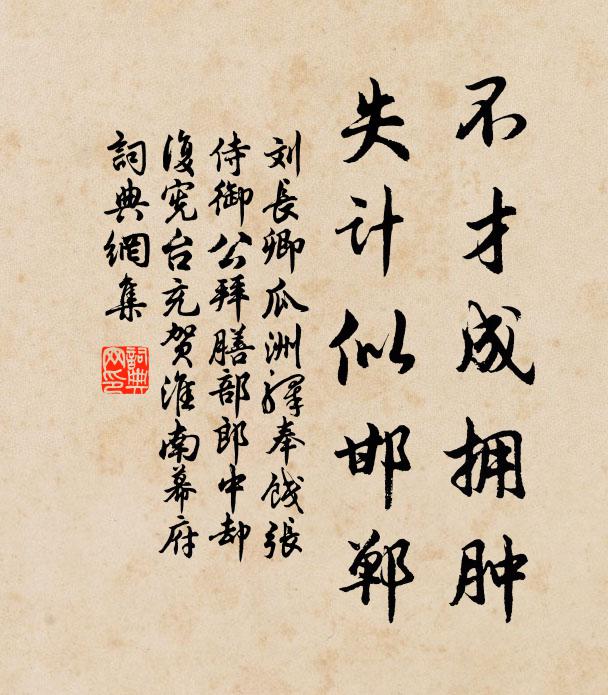 不才成拥肿
失计似邯郸
刘長卿瓜洲驛奉饯張
侍御公拜膳部郎中却
復宪台充贺淮南幕府
詞典網集
詞典网印